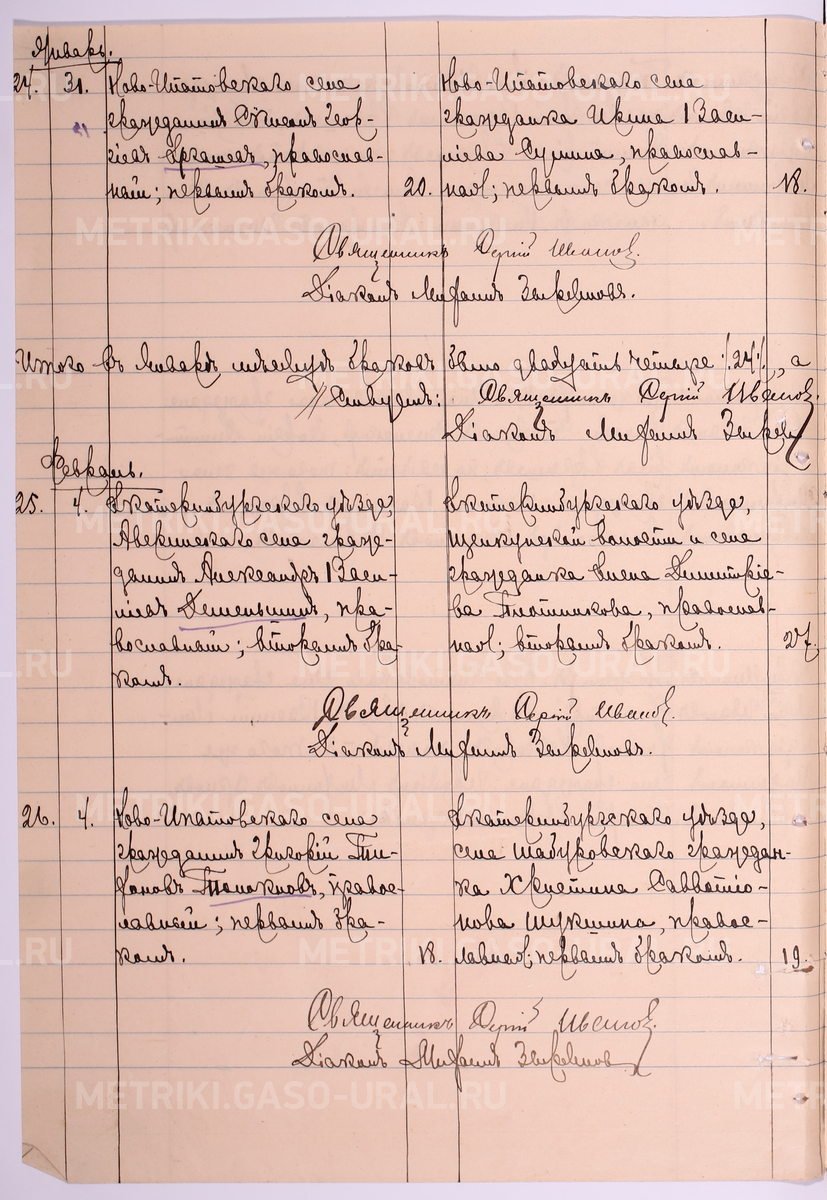 Январь.
24. 31. Ново-Ипатовскаго села
гражданинъ Сѵмеонъ Геор-
гіевъ православ-
ный; первымъ бракомъ. 20.
Ново-Ипатовскаго села
гражданка Ирина Васи-
ліева Сумина, православ-
ная; первымъ бракомъ. 18.
Священникъ Сергій Ивановъ.
Діаконъ
Итого въ Январѣ мѣсяцѣ браковъ было двадцать четыре /.24/., а
Священникъ Сергій Ивановъ.
Діаконъ
Февраль.
25. 4. Екатеринбургскаго уѣзда,
Аверинскаго села граж-
данинъ Александръ Васи-
ліевъ Деменьшинъ, пра-
вославный; вторымъ бра-
комъ.
Екатеринбургскаго уѣзда,
Щелкунской волости и села
гражданка Елена Димитріе-
ва Плотникова, православ-
ная; вторымъ бракомъ. 27.
Священникъ Сергій Ивановъ.
Діаконъ
26. 4. Ново-Ипатовскаго села
гражданинъ Григорій Ти-
оновъ Толокновъ, правос-
лавный; первымъ бра-
комъ. 18.
Екатеринбургскаго уѣзда,
села Шабуровскаго граждан-
ка Христина Савватіе-
нова Шукшина, правос-
лавная; первымъ бракомъ. 19.
Священникъ Сергій Ивановъ.
Діаконъ
METRIKI.GASO-URAL.RU